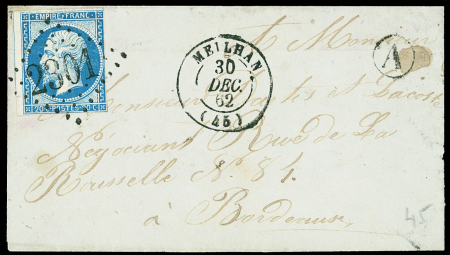 EMPIRE FRANC.
2301
MEILHAN
30
DEC.
62
(45)
A
à Monsieur
Messieurs et Lacoste
Négociant Rue de La
Rousselle N. 81.
à Bordeaux
45